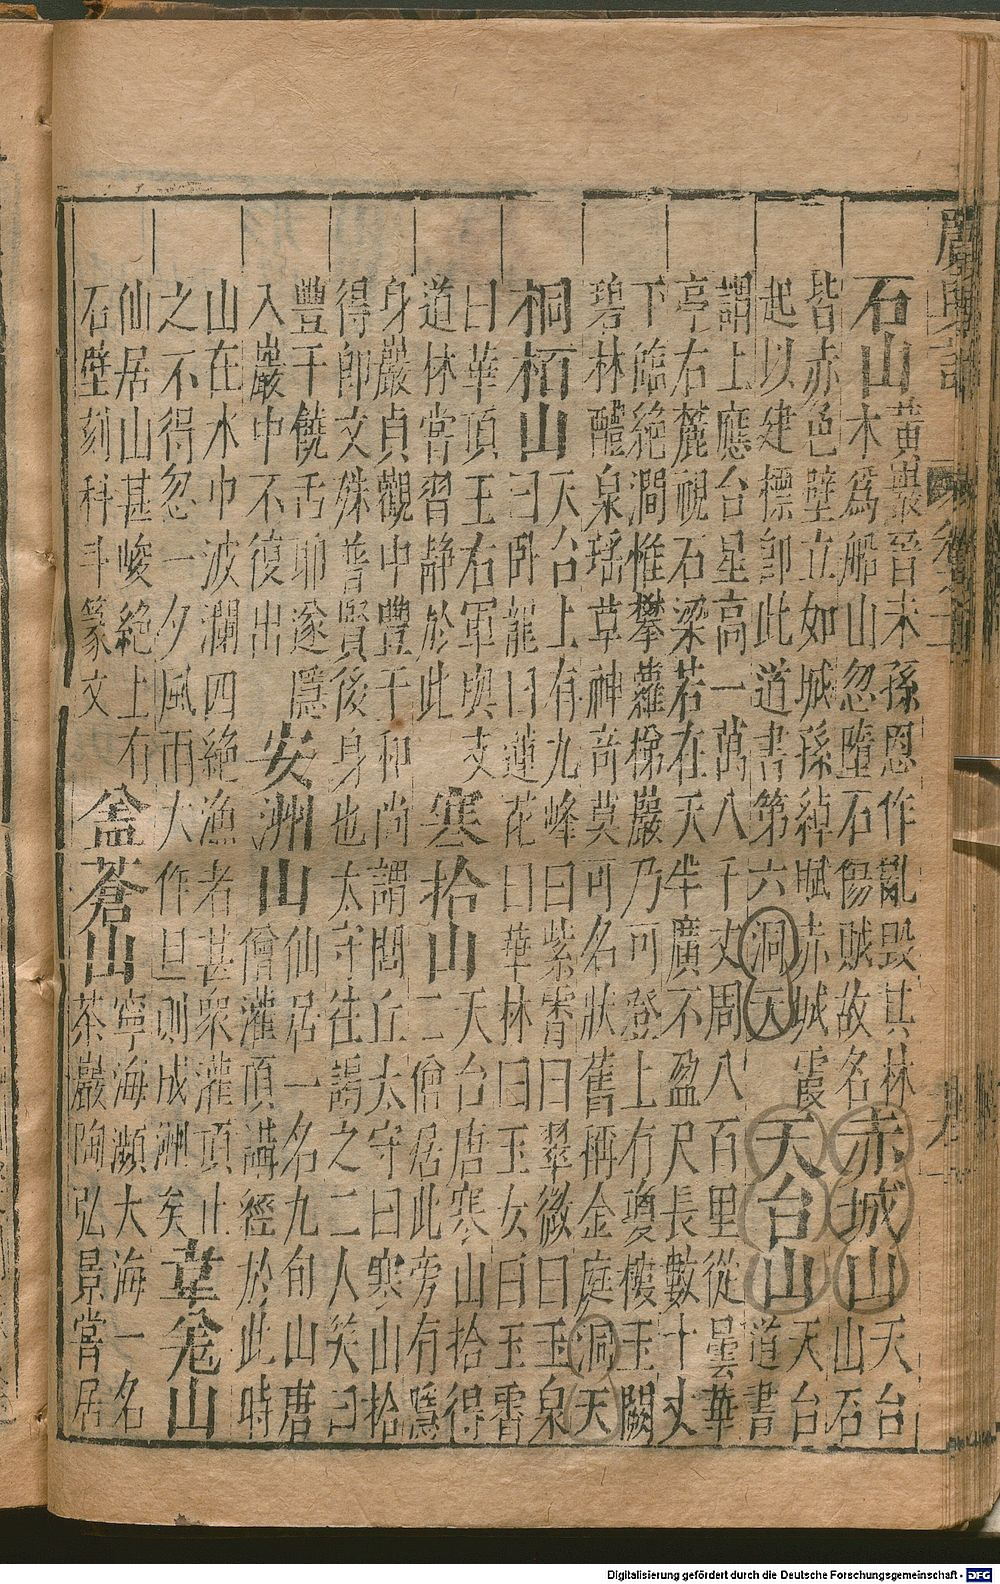 廣輿記
石山
黃巖晉末孫恩作亂毀其林
木爲船山忽墮石傷賊故名
赤城山
天台
山石
皆赤色壁立如城孫綽賦赤城霞
起以建標卽此道書第六洞天
天台山
天台
道書
謂上應台星高一萬八千丈周八百里從曇華
亭右麓視石梁若在天半廣不盈尺長數十丈
下臨絕澗惟攀蘿梯巖乃可登上有瓊樓玉闕
碧林醴泉瑤草神奇莫可名狀舊稱金庭洞天
桐栢山
天台上有九峰曰紫霄曰翠微曰玉泉
曰卧龍曰蓮花曰華林曰玉女曰玉霄
曰華頂王右軍與支
道林嘗習靜於此
寒拾山
天台唐寒山拾得
二僧居此旁有鴈
身巖貞觀中豐干和尚謂閭丘太守曰寒山拾
得卽文殊普賢後身也太守往謁之二人笑曰
豐干饒舌耶遂隱
入巖中不復出
安洲山
仙居一名九旬山唐
僧灌頂講經於此時
山在水中波瀾四絕漁者甚衆灌頂止
之不得忽一夕風雨大作旦則成洲矣
韋羌山
仙居山甚峻絕上有
石壁刻科斗篆文
盖蒼山
寧海瀕大海一名
茶巖陶弘景嘗居
Digitalisierung gefördert durch die Deutsche Forschungsgemeinschaft - DFG